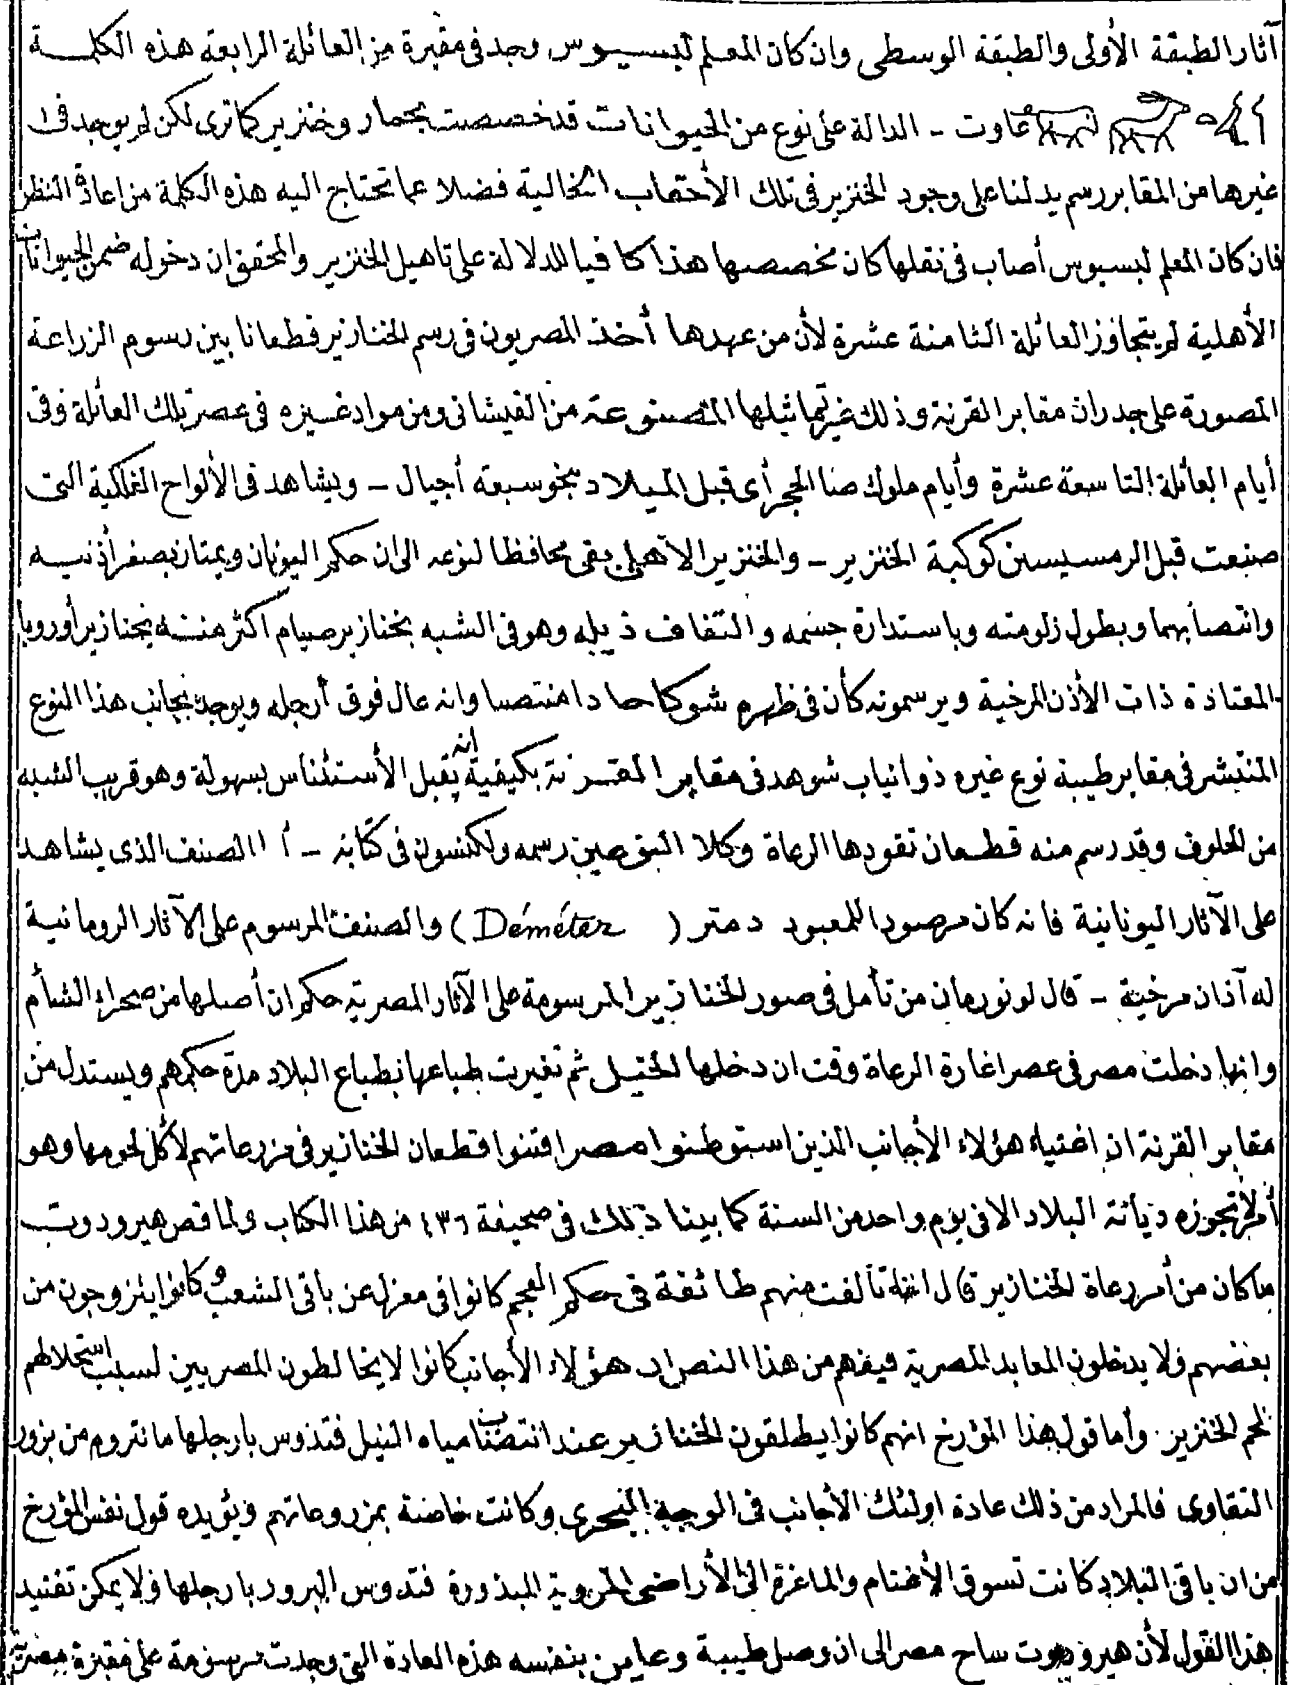 آثار الطبقة الأولى والطبقة الوسطى وان كان المعلم لبسيوس وجد فى مقبرة من العائلة الرابعة هذه الكلمة
عاوت - الدالة على نوع من الحيوانات قد خصصت بحمار وخنزير كما ترى لكن لم يوجد فى
غيرها من المقابر رسم يدلنا على وجود الخنزير فى تلك الأحقاب الخالية فضلا عما تحتاج اليه هذه الكلمة من اعادة النظر
فان كان المعلم لبسيوس أصاب فى نقلها كان مخصصها هذا كافيا للدلالة على تاهيل الخنزير والمحقق ان دخوله ضمن الحيوانات
الأهلية لم يتجاوز العائلة الثامنة عشرة لأن من عهدها أخذ المصريون فى رسم الخنازير قطعانا بين رسوم الزراعة
المصورة على جدران مقابر القرنة وذلك غير تماثيلها المصنوعة من القيشانى ومن مواد غيره فى عصر تلك العائلة وفى
أيام العائلة التاسعة عشرة وأيام ملوك صا الحجر أى قبل الميلاد بنحو سبعة أجيال - ويشاهد فى الألواح الفلكية التى
صنعت قبل الرمسيسين كوكبة الخنزير - والخنزير الاهلى بقى محافظا لنوعه الى ان حكم اليونان ويمتاز بصغر أذنيه
وانتصابهما وبطول زلومته وباستدارة جسمه والتفاف ذيله وهو فى الشبه بخنازير صيام اكثر منه بخنازير أوروپا
المعتادة ذات الأذن المرخية ويرسمونه كأن فى ظهره شوكا حادا منتصبا وانه عال فوق أرجله ويوجد بجانب هذا النوع
المنتشر فى مقابر طيبة نوع غيره ذو انياب شوهد فى مقابر القرنة بكيفية انه يقبل الأستئناس بسهولة وهو قريب الشبه
من الحلوف وقد رسم منه قطعان تقودها الرعاة وكلا النوعين رسمه ولكنسون فى كتابه - أما الصنف الذى يشاهد
على الآثار اليونانية فانه كان مرصودا للمعبود دمتر (Déméter) والصنف المرسوم على الآثار الرومانية
له آذان مرخية - قال لونورمان من تأمل فى صور الخنازير المرسومة على الآثار المصرية حكم ان أصلها من صحراء الشأم
وانها دخلت مصر فى عصر اغارة الرعاة وقت ان دخلها الخيل ثم تغيرت طباعها بطباع البلاد مدة حكمهم ويستدل من
مقابر القرنة ان اغنياء هؤلاء الأجانب الذين استوطنوا مصر اقتنوا قطعان الخنازير فى مزرعاتهم لأكل لحومها وهو
أمر لا تجوزه ديانة البلاد الا فى يوم واحد من السنة كما بينا ذلك فى صحيفة ٤٣٦ من هذا الكتاب ولما قص هيرودوت
ما كان من أمر رعاة الخنازير قال انه تألفت منهم طائفة فى حكم العجم كانوا فى معزل عن باقى الشعب وكانوا يتزوجون من
بعضهم ولا يدخلون المعابد المصرية فيفهم من هذا النص ان هؤلاء الأجانب كانوا لا يخالطون المصريين لسبب استحلالهم
لحم الخنزير. وأما قول هذا المؤرخ انهم كانوا يطلقون الخنازير عند انتضاب مياه النيل فتدوس بارجلها ما تروم من بزور
التقاوى فالمراد من ذلك عادة اولئك الأجانب فى الوجه البحرى وكانت خاصة بمزروعاتهم ويؤيده قول نفس المؤرخ
من ان باقى البلاد كانت تسوق الأغنام والماعزة الى الأراضى المروية المبذورة فتدوس البرور بارجلها ولا يمكن تفنيد
هذا القول لأن هيرودوت ساح مصر الى ان وصل طيبة وعاين بنفسه هذه العادة التى وجدت مرسومة على مقبرة مصرية